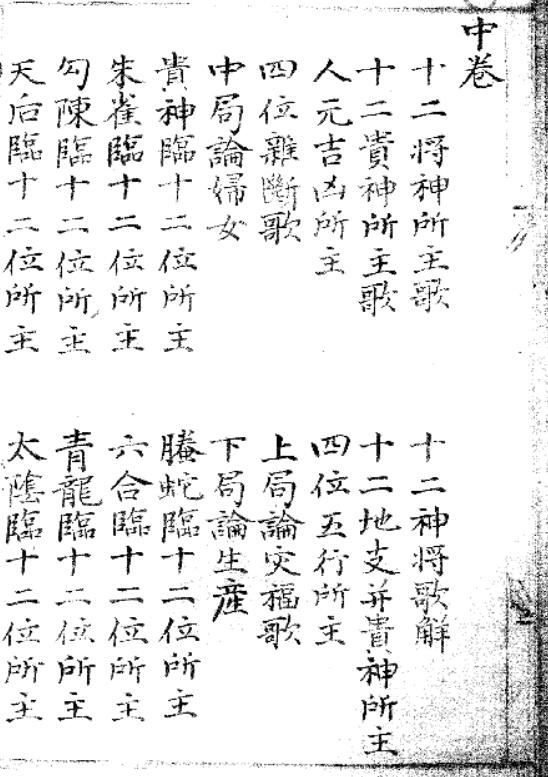 中卷
十二将神所主歌　十二神将歌解
十二貴神所主歌　十二地支并貴神所主
人元吉凶所主　四位五行所主
四位雜斷歌　上局論灾福歌
中局論婦女　下局論生產
貴神臨十二位所主　螣蛇臨十二位所主
朱雀臨十二位所主　六合臨十二位所主
勾陳臨十二位所主　青龍臨十二位所主
天后臨十二位所主　太陰臨十二位所主